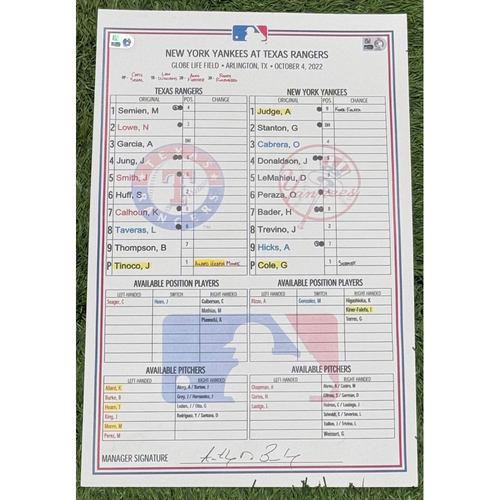 NEW YORK YANKEES AT TEXAS RANGERS
GLOBE LIFE FIELD • ARLINGTON, TX • OCTOBER 4, 2022
TEXAS RANGERS
ORIGINAL POS. CHANGE
1 Semien, M 4
2 Lowe, N 3
3 Garcia, A DH
4 Jung, J
5 Smith, J
6 Huff, S 2
7 Calhoun, K
8 Taveras, L
9 Thompson, B 7
P Tinoco, J 1
NEW YORK YANKEES
ORIGINAL POS. CHANGE
1 Judge, A 9
2 Stanton, G DH
3 Cabrera, O
4 Donaldson, J
5 LeMahieu, D
6 Peraza, O
7 Bader, H
8 Trevino, J
9 Hicks, A 7
P Cole, G 1
AVAILABLE POSITION PLAYERS
LEFT-HANDED SWITCH RIGHT-HANDED
Seager, C Heim, J Culberson, C
Mathias, M
Plawecki, K
AVAILABLE POSITION PLAYERS
LEFT-HANDED SWITCH RIGHT-HANDED
Rizzo, A Gonzalez, M Higashioka, K
Kiner-Falefa, I
Torres, G
AVAILABLE PITCHERS
LEFT-HANDED RIGHT-HANDED
Allard, K Alexy, A / Barlow, J
Burke, B Gray, J / Hernandez, J
Hearn, T Leclerc, J / Otto, G
King, J Rodriguez, Y / Santana, D
Moore, M
Perez, M
AVAILABLE PITCHERS
LEFT-HANDED RIGHT-HANDED
Chapman, A Abreu, A / Castro, M
Cortes, N Effross, S / German, D
Luetge, L Holmes, C / Loaisiga, J
Schmidt, C / Severino, L
Taillon, J / Trivino, L
Weissert, G
MANAGER SIGNATURE